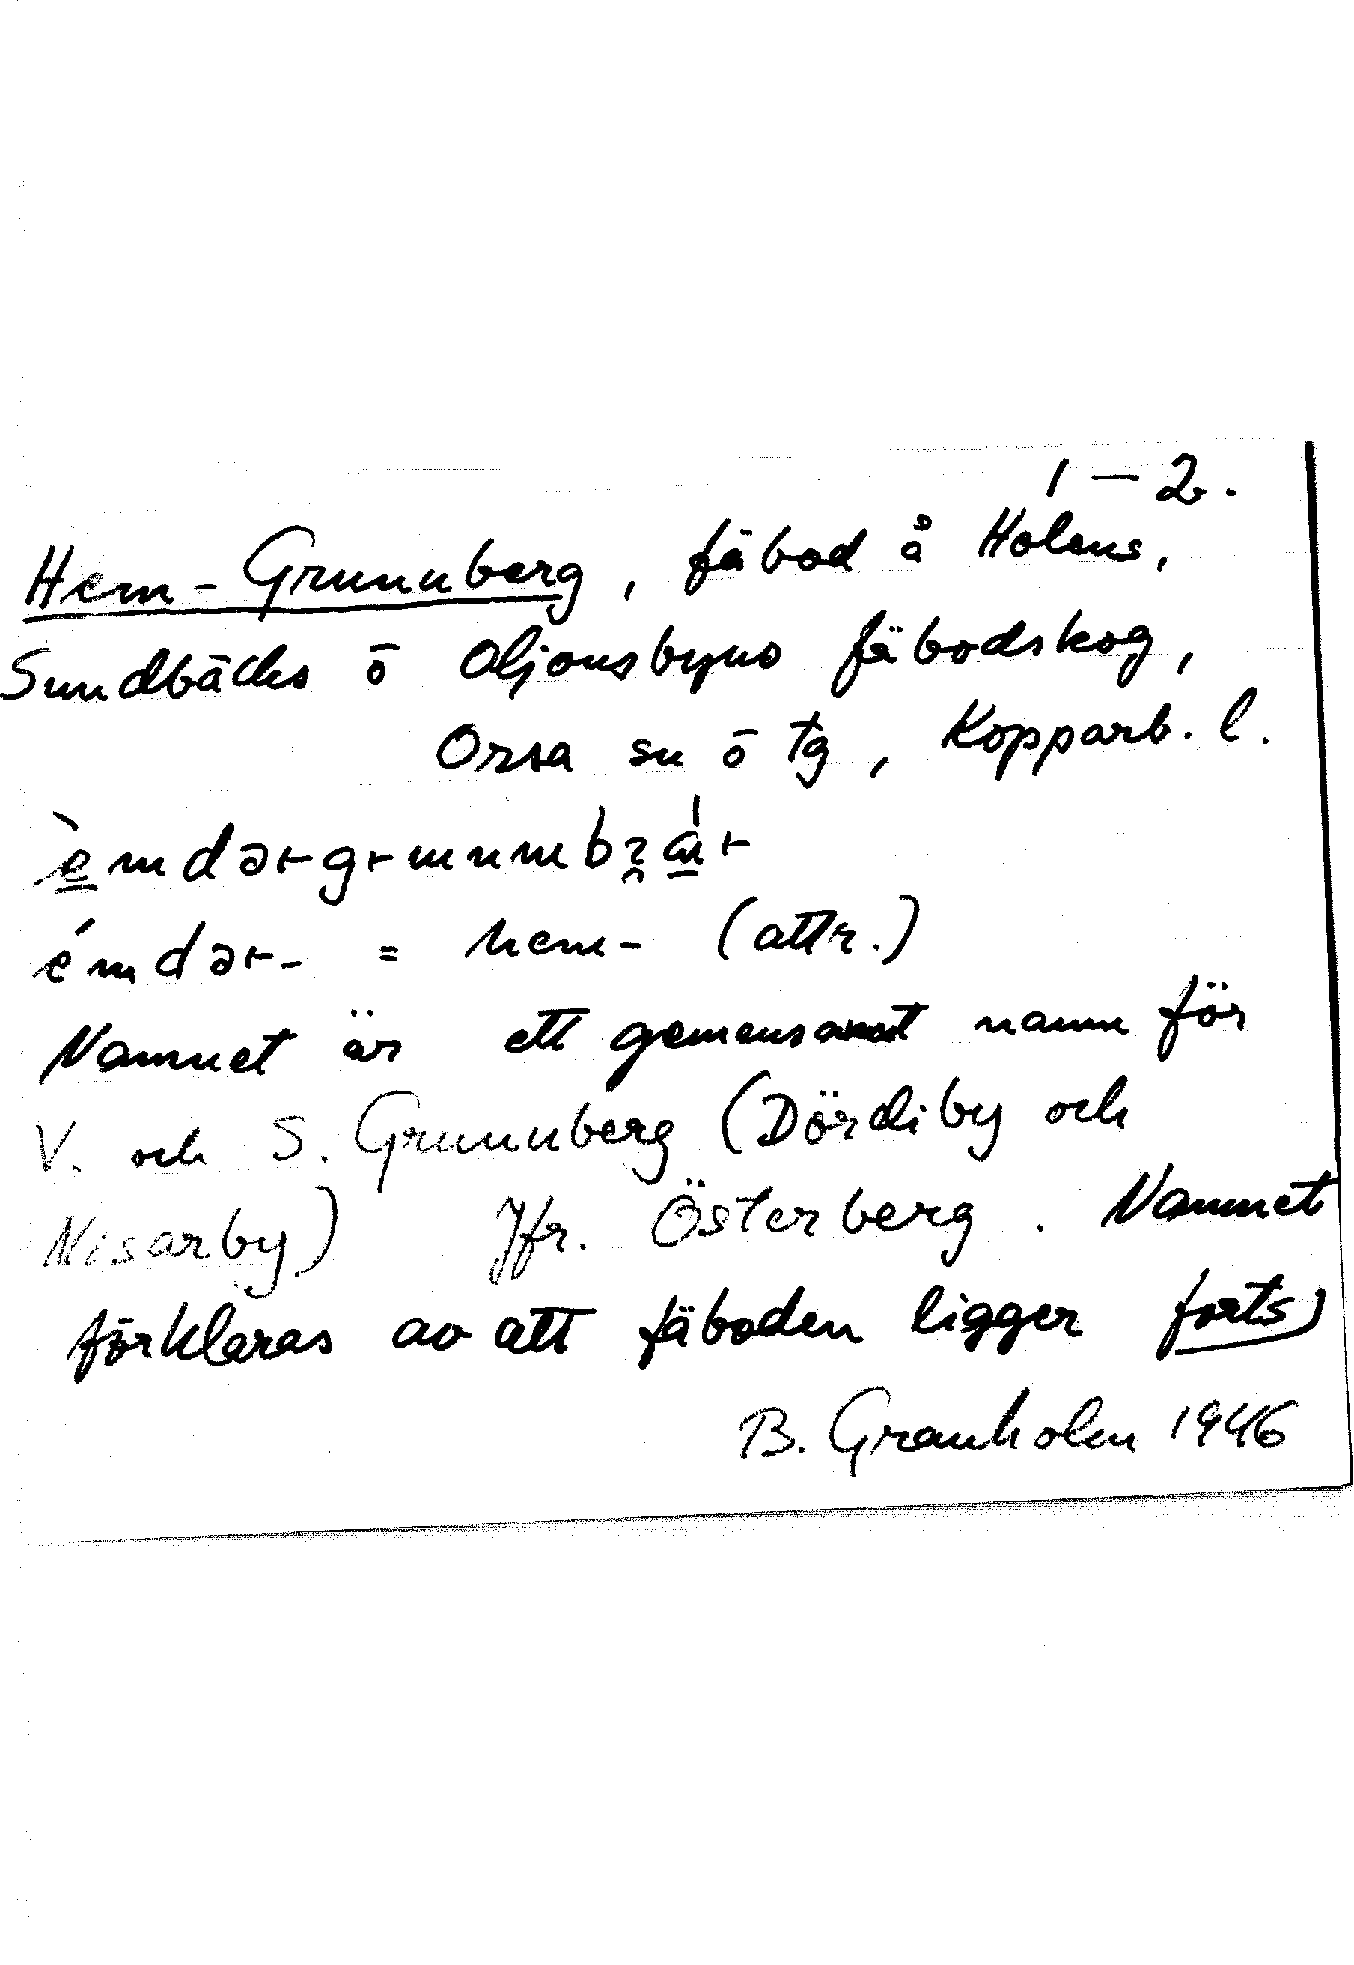 1 – 2.
Hem-Grunuberg, fäbod å Holens,
Sundbäcks o Oljonsbyns fäbodskog,
Orsa sn o tg, Kopparb. l.
émdər- = hem- (attr.)
Namnet är ett gemensamt namn för
V. och S. Grunuberg (Dördiby och
Nisarby) Jfr. Österberg. Namnet
förklaras av att fäboden ligger forts)
B. Granholm 1946